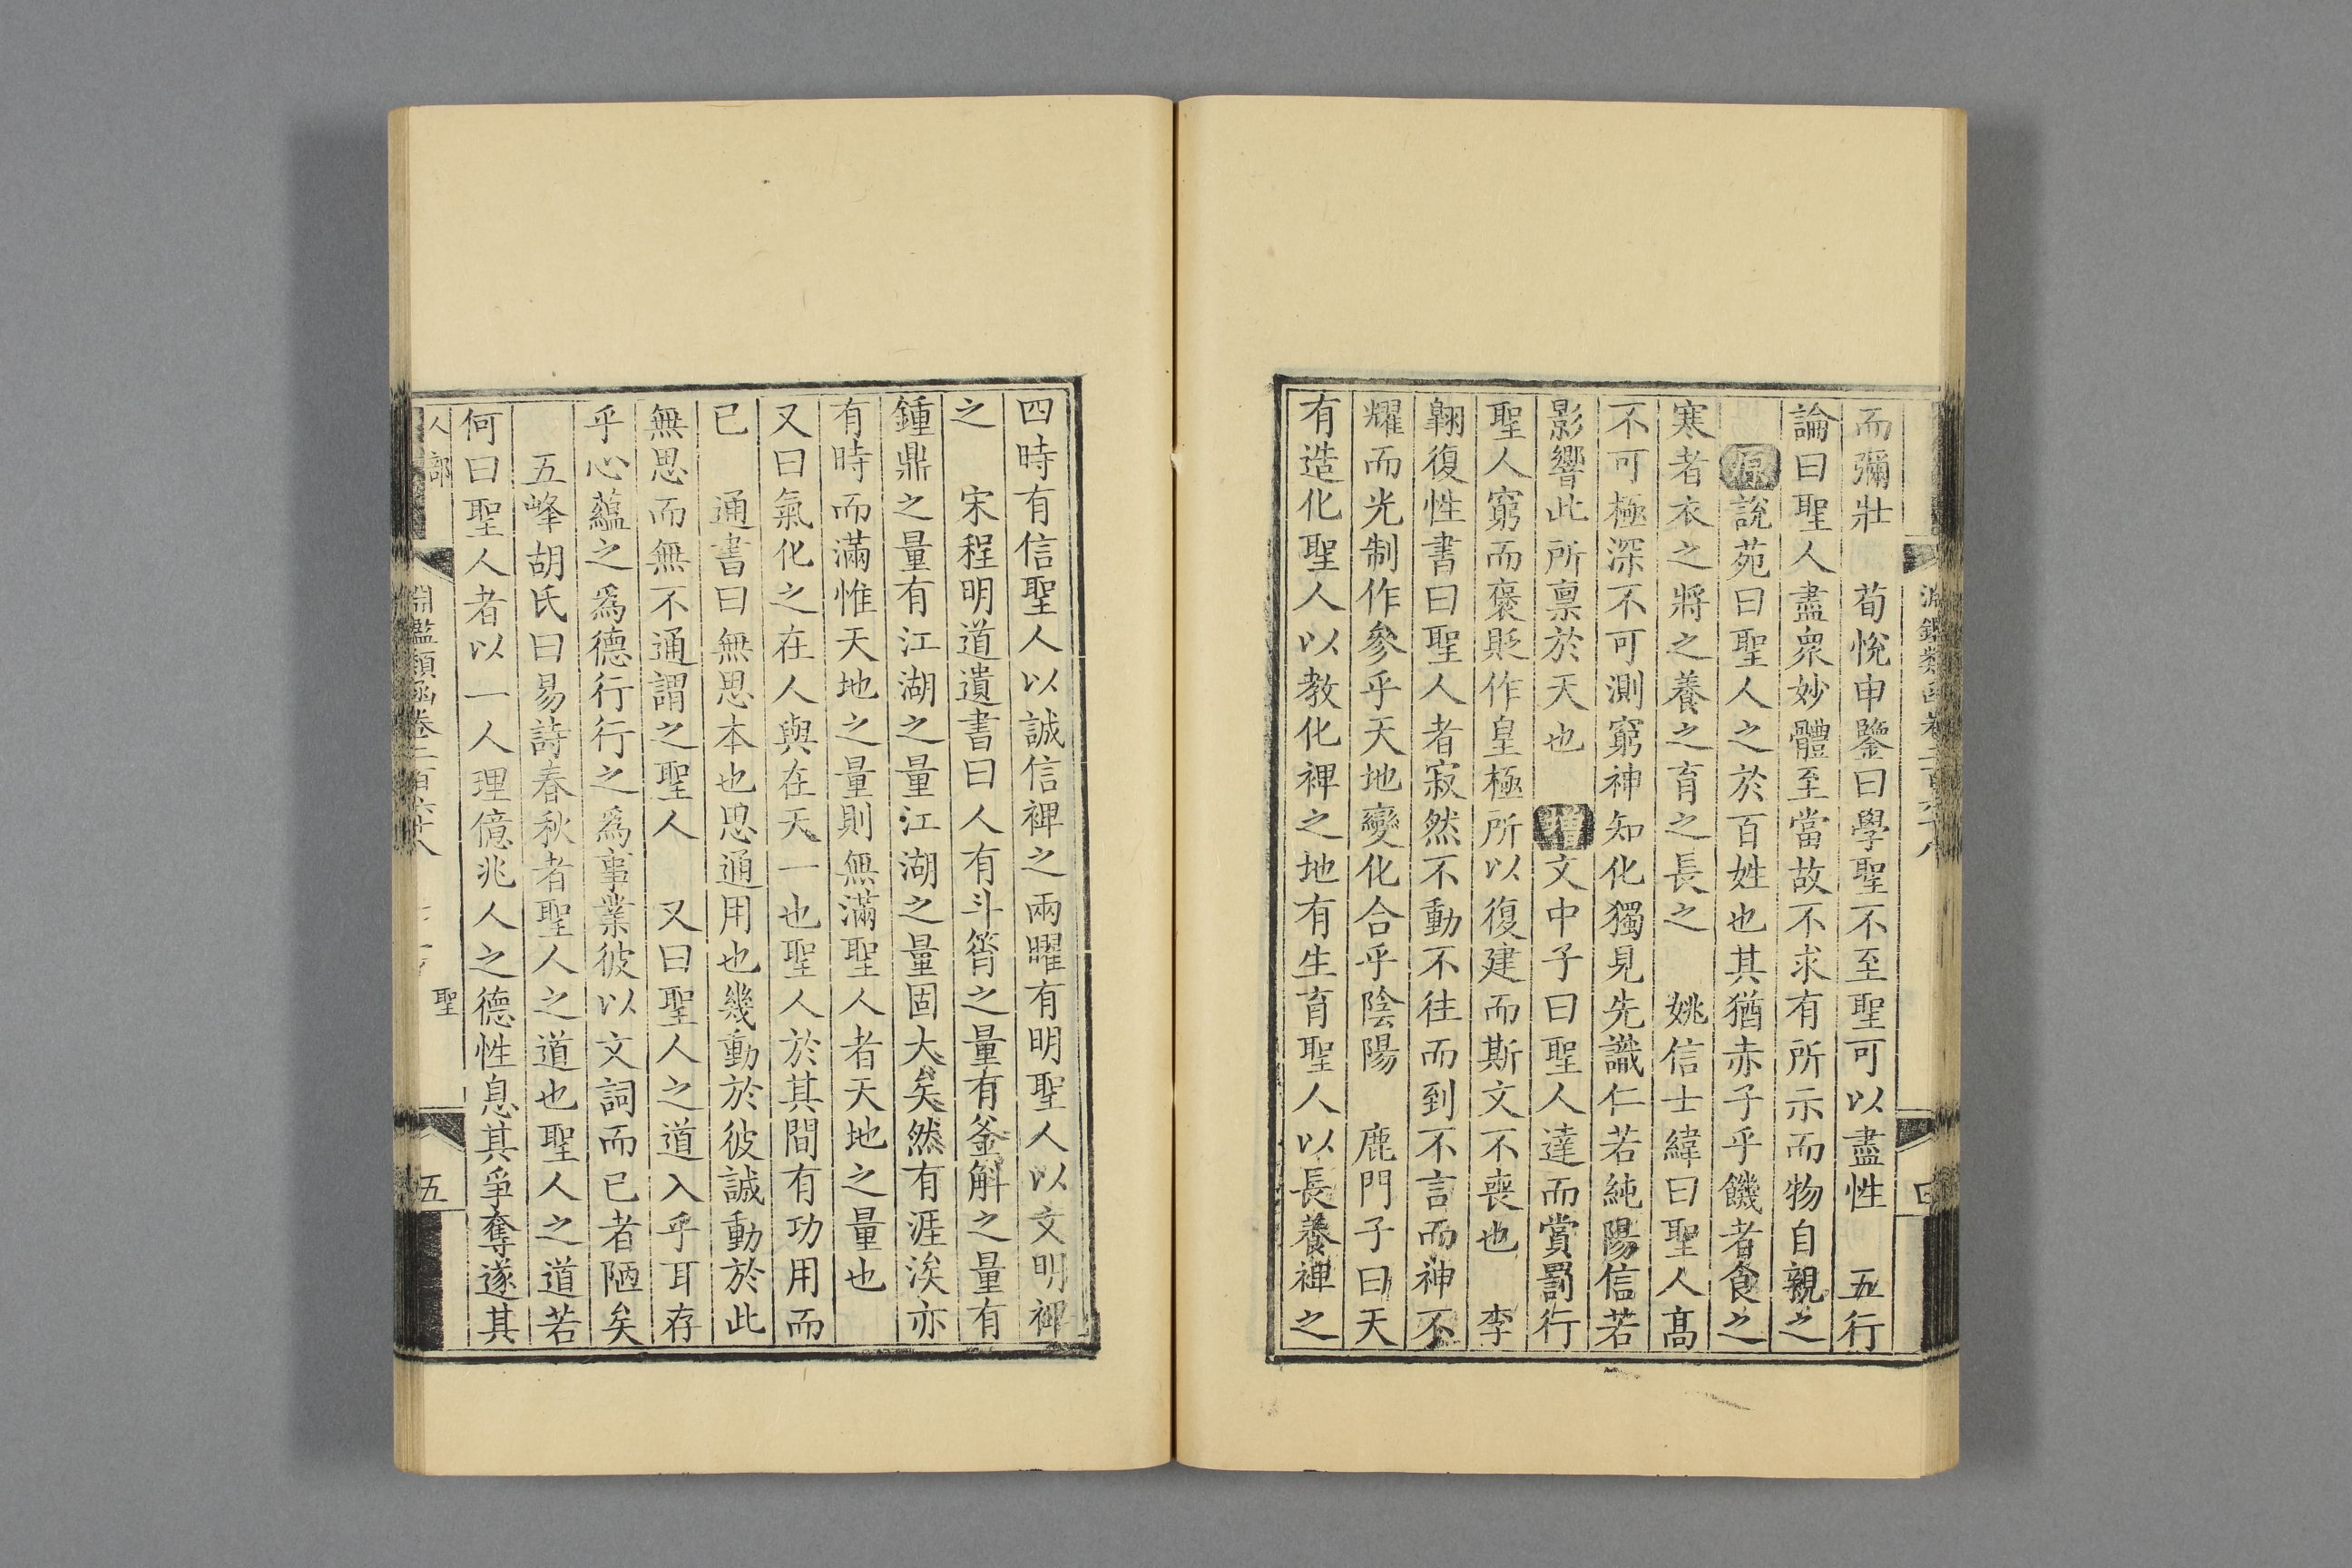 淵鑑類函卷二百六十八
而彌壯　荀悅申鑒曰學聖不至聖可以盡性　五行
論曰聖人盡衆妙體至當故不求有所示而物自親之
原說苑曰聖人之於百姓也其猶赤子乎饑者食之
寒者衣之將之養之育之長之　姚信士緯曰聖人髙
不可極深不可測窮神知化獨見先識仁若純陽信若
影響此所禀於天也　增文中子曰聖人達而賞罰行
聖人窮而褒貶作皇極所以復建而斯文不喪也　李
翺復性書曰聖人者寂然不動不往而到不言而神不
耀而光制作參乎天地變化合乎陰陽　鹿門子曰天
有造化聖人以教化裨之地有生育聖人以長養裨之
四時有信聖人以誠信裨之兩曜有明聖人以文明裨
之　宋程明道遺書曰人有斗筲之量有釜斛之量有
鍾鼎之量有江湖之量江湖之量固大矣然有涯涘亦
有時而滿惟天地之量則無滿聖人者天地之量也
又曰氣化之在人與在天一也聖人於其間有功用而
已　通書曰無思本也思通用也幾動於彼誠動於此
無思而無不通謂之聖人　又曰聖人之道入乎耳存
乎心蘊之爲德行行之爲事業彼以文詞而已者陋矣
五峰胡氏曰易詩春秋者聖人之道也聖人之道若
何曰聖人者以一人理億兆人之德性息其爭奪遂其
人部
淵鑑類函卷二百六十八
聖
五